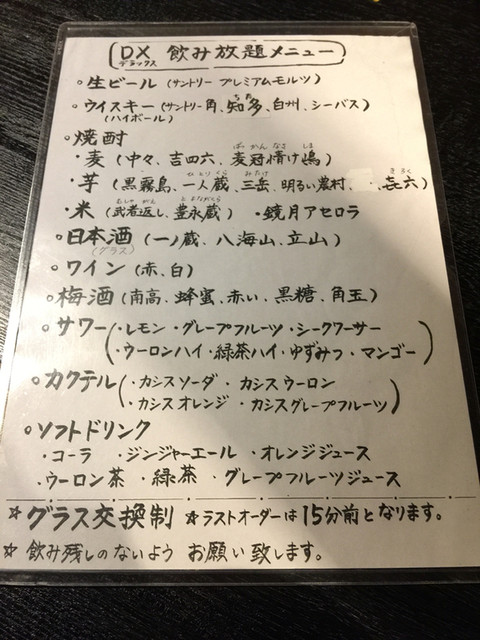 DX 飲み放題メニュー
デラックス
○生ビール (サントリー プレミアムモルツ)
○ウイスキー (サントリー角、知多、白州、シーバス)
(ハイボール)
○焼酎
・麦 (中々、吉四六、麦冠情け嶋)
・芋 (黒霧島、一人蔵、三岳、明るい農村、㐂六)
・米 (武者返し、豊永蔵) ・鏡月アセロラ
○日本酒 (一ノ蔵、八海山、立山)
(グラス)
○ワイン (赤、白)
○梅酒 (南高、蜂蜜、赤い、黒糖、角玉)
○サワー (・レモン ・グレープフルーツ ・シークワーサー
・ウーロンハイ ・緑茶ハイ ・ゆずみつ ・マンゴー)
○カクテル (・カシスソーダ ・カシスウーロン
・カシスオレンジ ・カシスグレープフルーツ)
○ソフトドリンク
・コーラ ・ジンジャーエール ・オレンジジュース
・ウーロン茶 ・緑茶 ・グレープフルーツジュース
☆グラス交換制 ☆ラストオーダーは15分前となります。
☆飲み残しのないよう お願い致します。